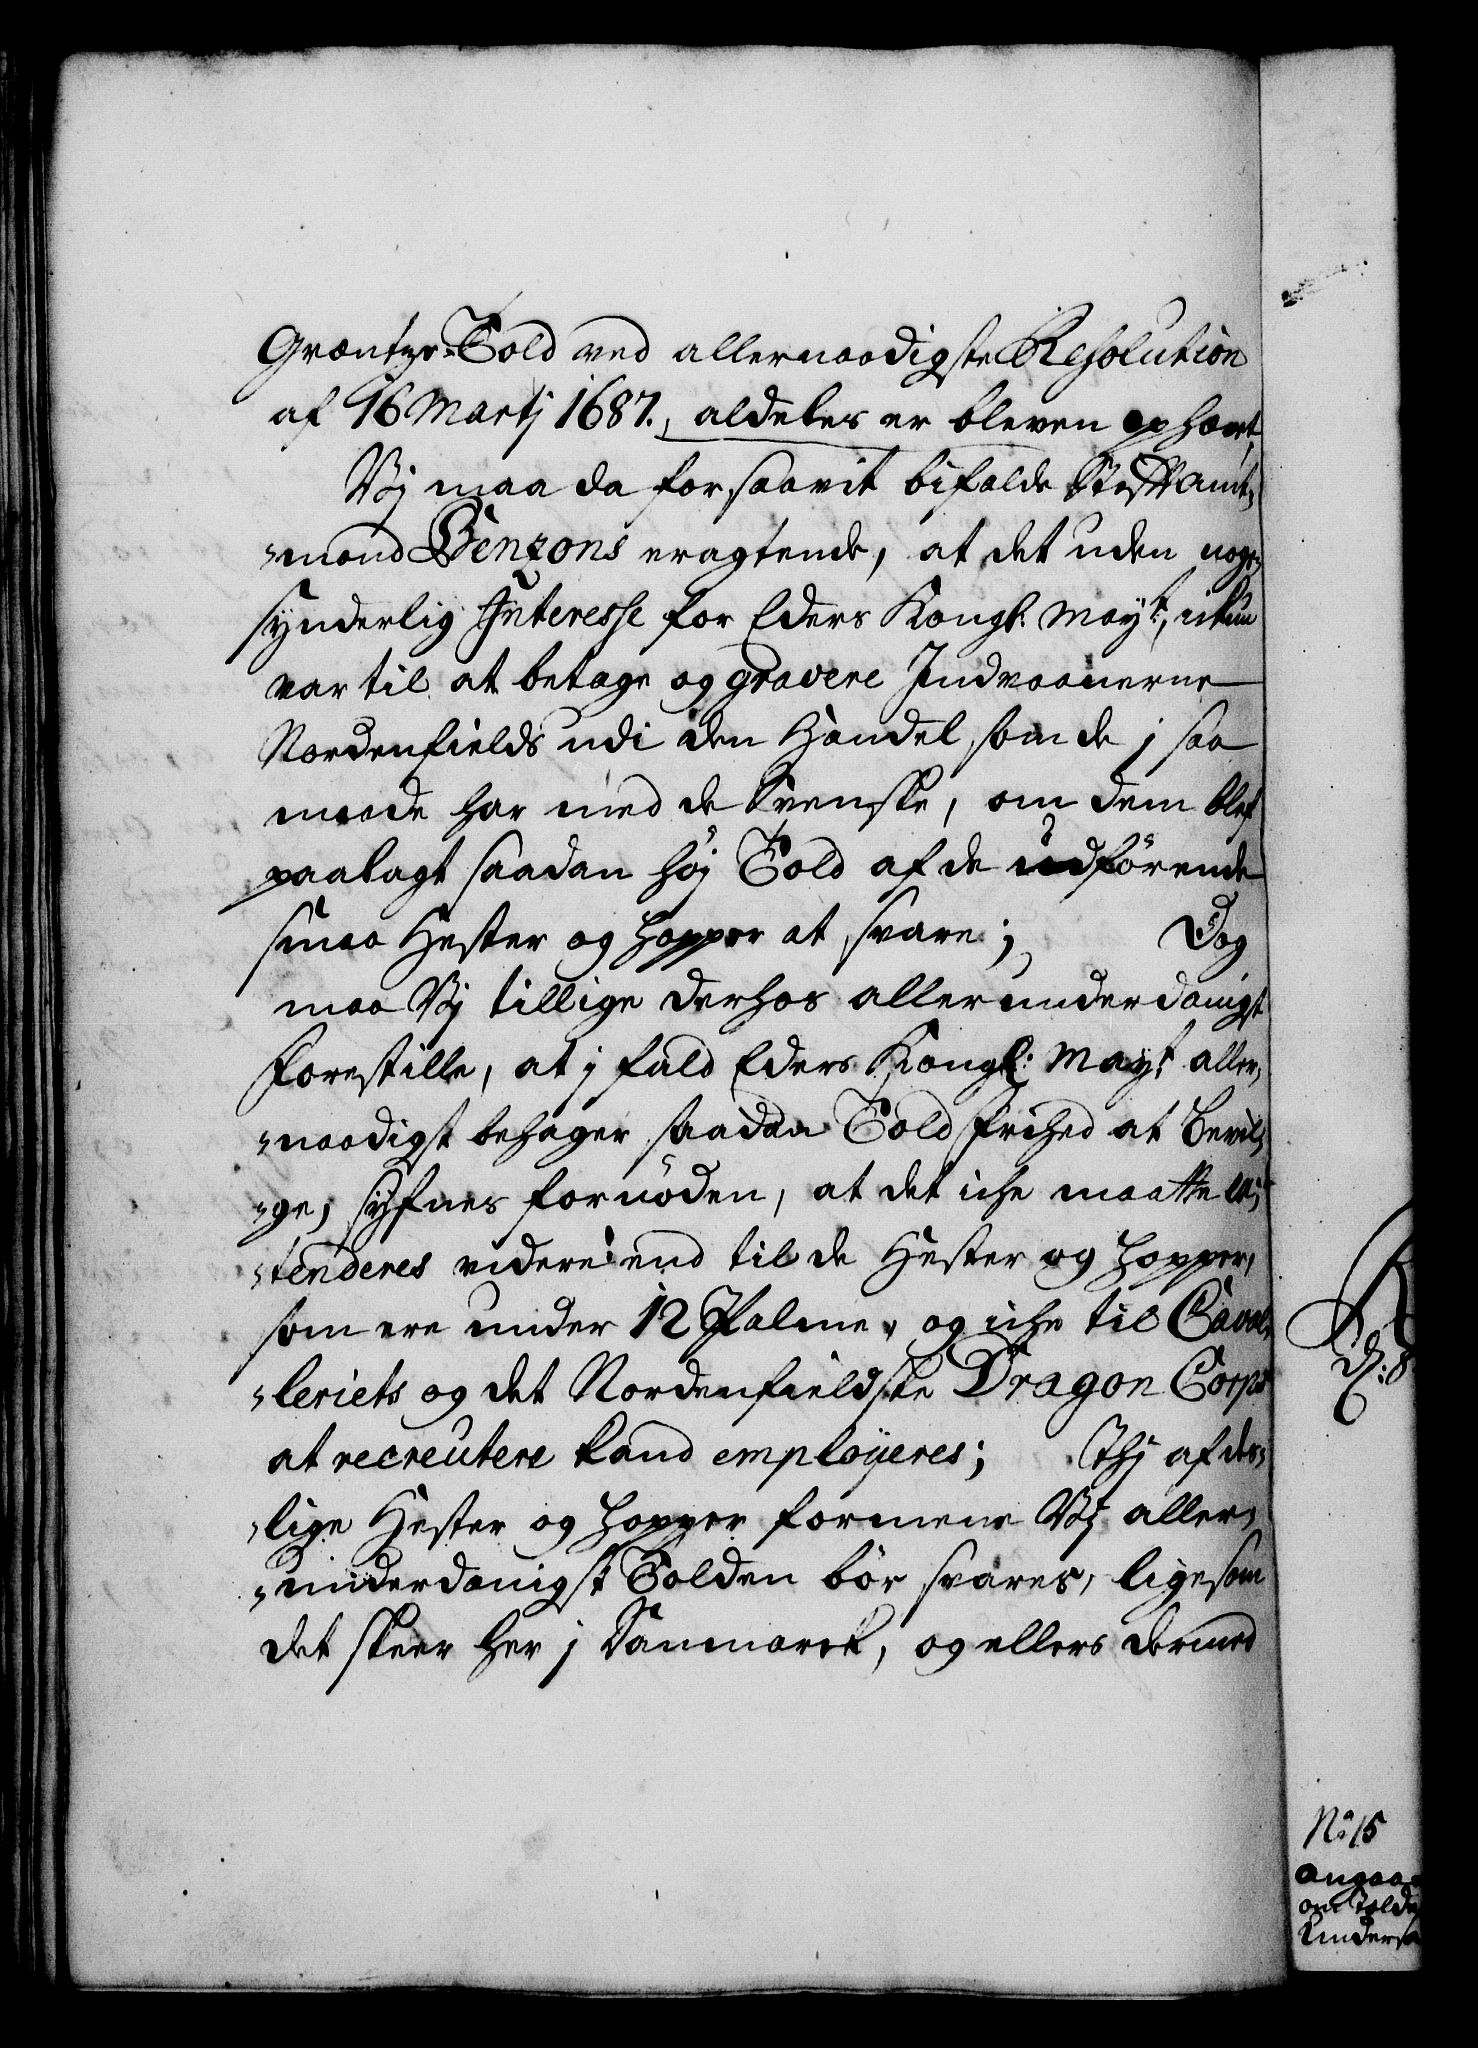 Græntze-Told ved allernaadigste Resolution
af 16 Martj 1687., aldeles er bleven ophævet,
Vj maa da forsaavit bifalde StiftAmt-
-mand Benzons eragtende, at det uden nogen
synderlig Interesse for Eders Kongl: Mayt:, ikun
var til at betage og gravere Indvaanerne
Nordenfields udi den Handel, som de j saa
maade har med de Svenske, om dem blef
paalagt saadan høj Told af de udförende
smaa Hester og Hopper at svare; Dog
maa Vj tillige derhos allerunderdanigst
forestille, at j fald Eders Kongl: Mayt aller-
-naadigst behager saadan Told frihed at bevil-
-ge, syfnes fornöden, at det iche maatte ex-
-tenderes videre end til de Hester og Hopper,
som ere under 12 Palme, og iche til Caval-
-leriets og det Nordenfieldske Dragon Corps
at recreutere kand employeres; Thj af des-
-lige Hester og Hopper formene Vj aller-
-underdanigst Tolden bör svares, ligesom
det skeer her j Danmarck, og ellers dermed
No 15
angaa
om Told
Unders